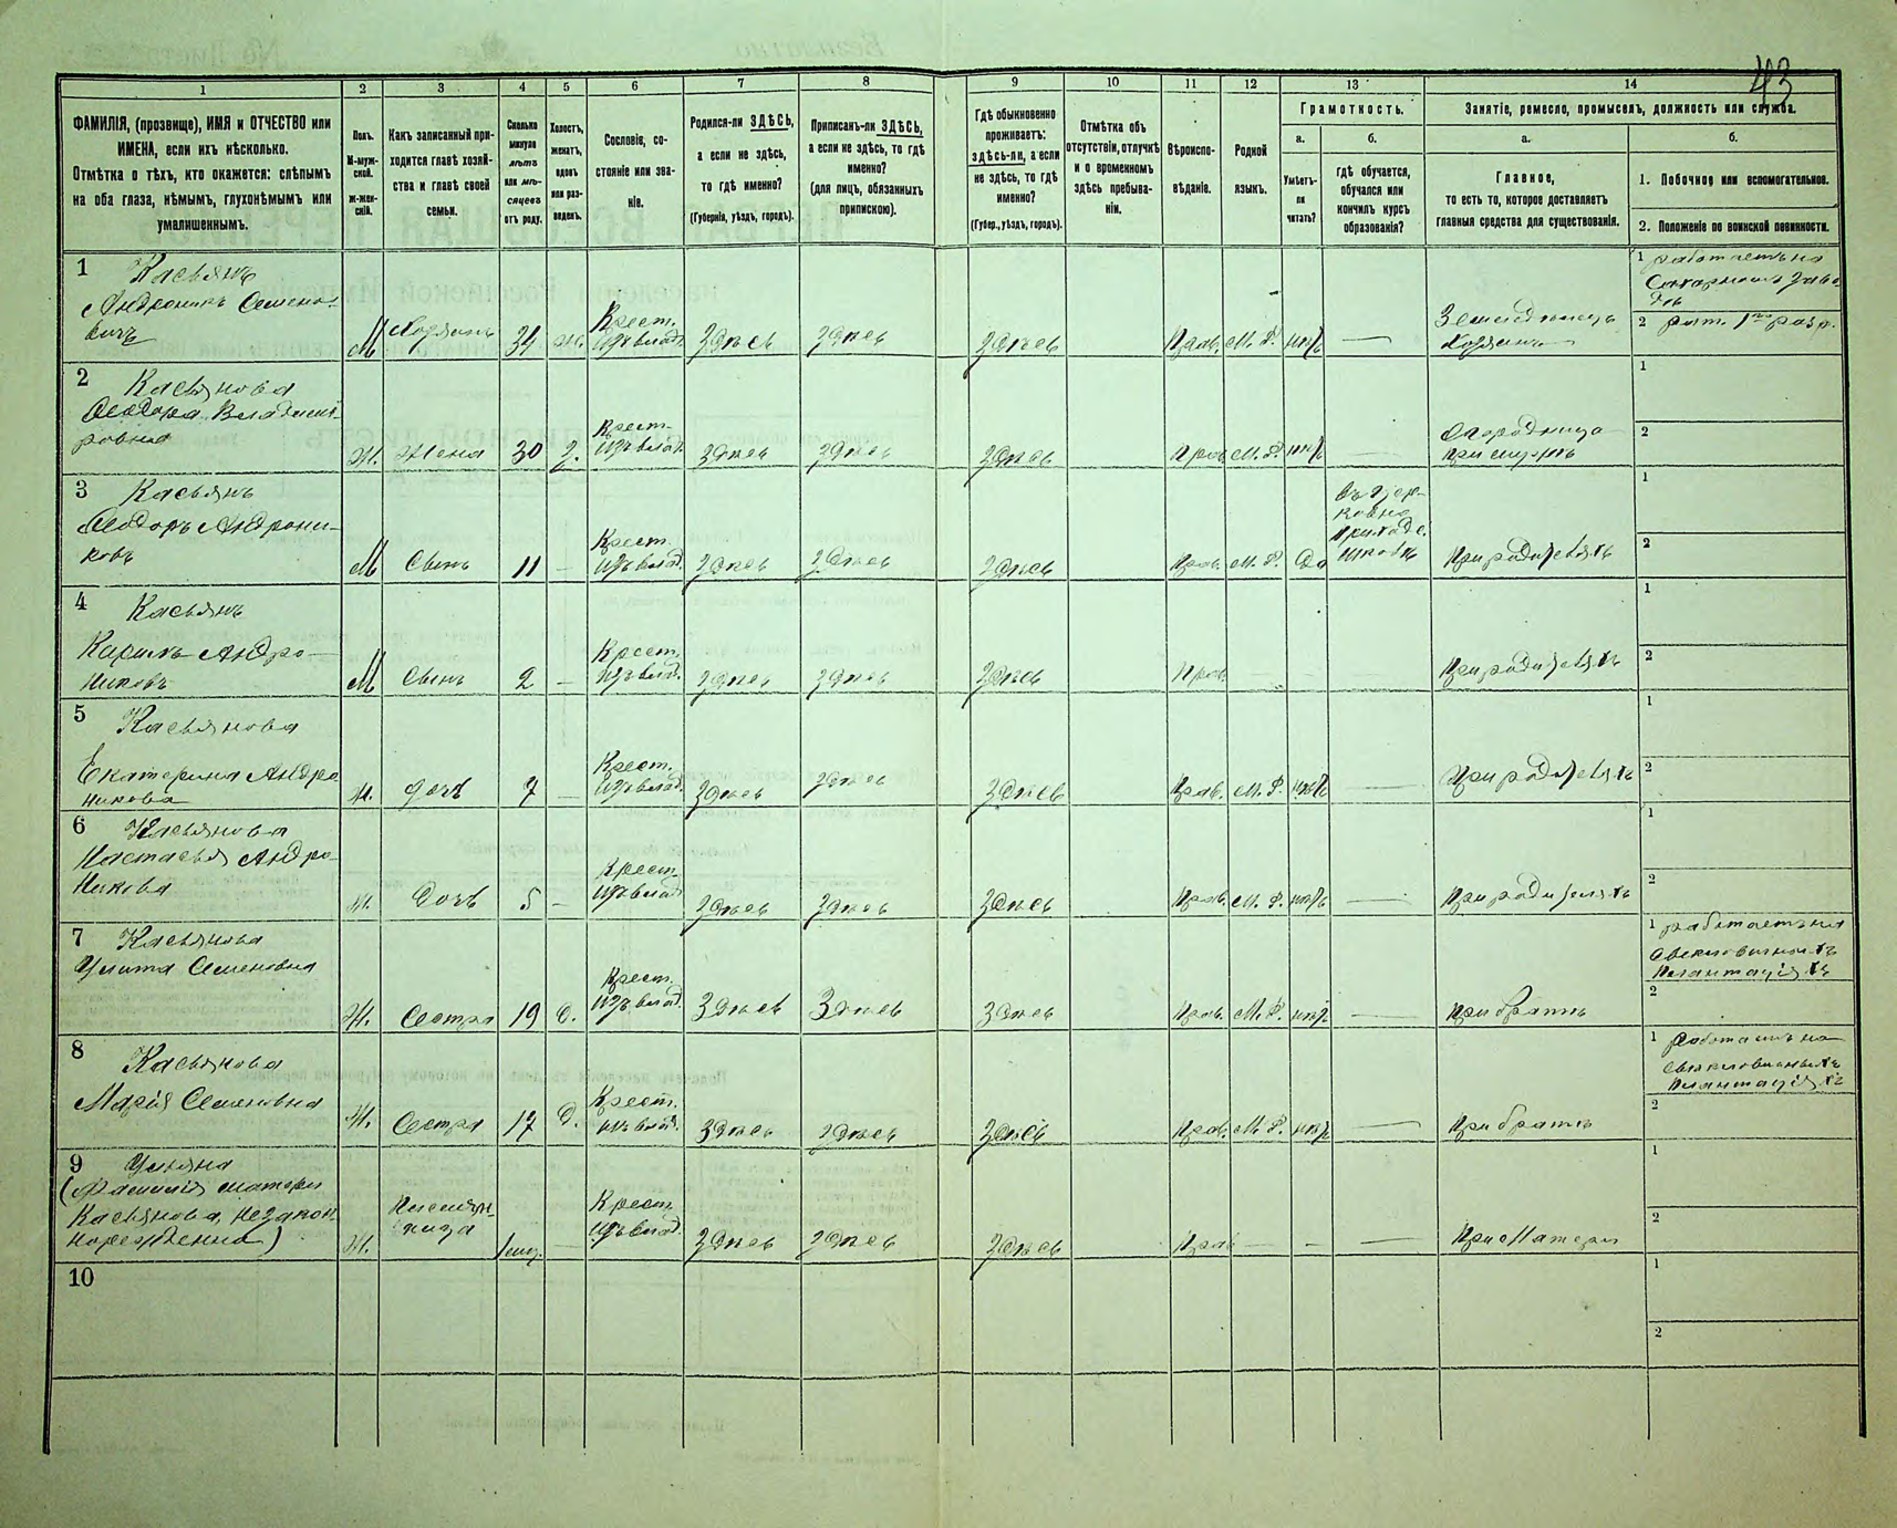 43
1 2 3 4 5 6 7 8 9 10 11 12 13 14
ФАМИЛІЯ, (прозвище), ИМЯ и ОТЧЕСТВО или
ИМЕНА, если ихъ нѣсколько.
Отмѣтка о тѣхъ, кто окажется: слѣпымъ
на оба глаза, нѣмымъ, глухонѣмымъ или
умалишеннымъ.
Полъ.
М-муж-
ской.
Ж-жен-
скій.
Какъ записанный при-
ходится главѣ хозяй-
ства и главѣ своей
семьи.
Сколько
минуло
лѣтъ
или мѣ-
сяцевъ
отъ роду.
Холостъ,
женатъ,
вдовъ
или раз-
веденъ.
Сословіе, со-
стояніе или зва-
ніе.
Родился-ли ЗДѢСЬ,
а если не здѣсь,
то гдѣ именно?
(Губернія, уѣздъ, городъ).
Приписанъ-ли ЗДѢСЬ,
а если не здѣсь, то гдѣ
именно?
(для лицъ, обязанныхъ
припискою).
Гдѣ обыкновенно
проживаетъ:
здѣсь-ли, а если
не здѣсь, то гдѣ
именно?
(Губер., уѣздъ, городъ).
Отмѣтка объ
отсутствіи, отлучкѣ
и о временномъ
здѣсь пребыва-
ніи.
Вѣроиспо-
вѣданіе.
Родной
языкъ.
Грамотность.
а.
Умѣетъ-
ли
читать?
б.
Гдѣ обучается,
обучался или
кончилъ курсъ
образованія?
Занятіе, ремесло, промыселъ, должность или служба.
а.
Главное,
то есть то, которое доставляетъ
главныя средства для существованія.
б.
1. Побочное или вспомогательное.
2. Положеніе по воинской повинности.
1 Касьянъ
Андроникъ Семено-
вичъ
М Хозяинъ 34 ж. Крест. изъ влад. здѣсь здѣсь здѣсь Прав. М. Р. нѣтъ —
Земледѣлецъ
Хозяинъ
1 работаетъ на
Сахарномъ Заво-
дѣ
2 рат. 1го разр.
2 Касьянова
Ѳеодора Владими-
ровна
Ж. Жена 30 З. Крест. изъ влад. здѣсь здѣсь здѣсь Прав. М. Р. нѣтъ
Огородница
при мужѣ
1
2
3 Касьянъ
Ѳеодоръ Андрони-
ковъ
М Сынъ 11 — Крест. изъ влад. здѣсь здѣсь здѣсь Прав. М. Р. Да
въ Цер-
ковно
приход.
школѣ
при родителяхъ
1
2
4 Касьянъ
Кирилъ Андро-
никовъ
М Сынъ 2 — Крест. изъ влад. здѣсь здѣсь здѣсь Прав.
при родителяхъ
1
2
5 Касьянова
Екатерина Андро-
никова
Ж. Дочь 7 — Крест. изъ влад. здѣсь здѣсь здѣсь Прав. М. Р. нѣтъ —
при родителяхъ
1
2
6 Касьянова
Настасья Андро-
никова
Ж. Дочь 5 — Крест. изъ влад. здѣсь здѣсь здѣсь Прав. М. Р. нѣтъ —
при родителяхъ
1
2
7 Касьянова
Улита Семеновна
Ж. Сестра 19 Д. Крест. изъ влад. Здѣсь Здѣсь Здѣсь Прав. М. Р. нѣтъ —
при братѣ
1 работаетъ на
свекловичныхъ
плантаціяхъ
2
8 Касьянова
Марія Семеновна
Ж. Сестра 17 Д. Крест. изъ влад. здѣсь здѣсь здѣсь Прав. М. Р. нѣтъ —
при братѣ
1 работаетъ на
свекловичныхъ
плантаціяхъ
2
9 Ульяна
(Фамилія матери
Касьянова, незакон-
норожденна)
Ж. Племян-
ница
Крест. изъ влад. здѣсь здѣсь здѣсь Прав — - —
при Матери
1
2
10
1
2